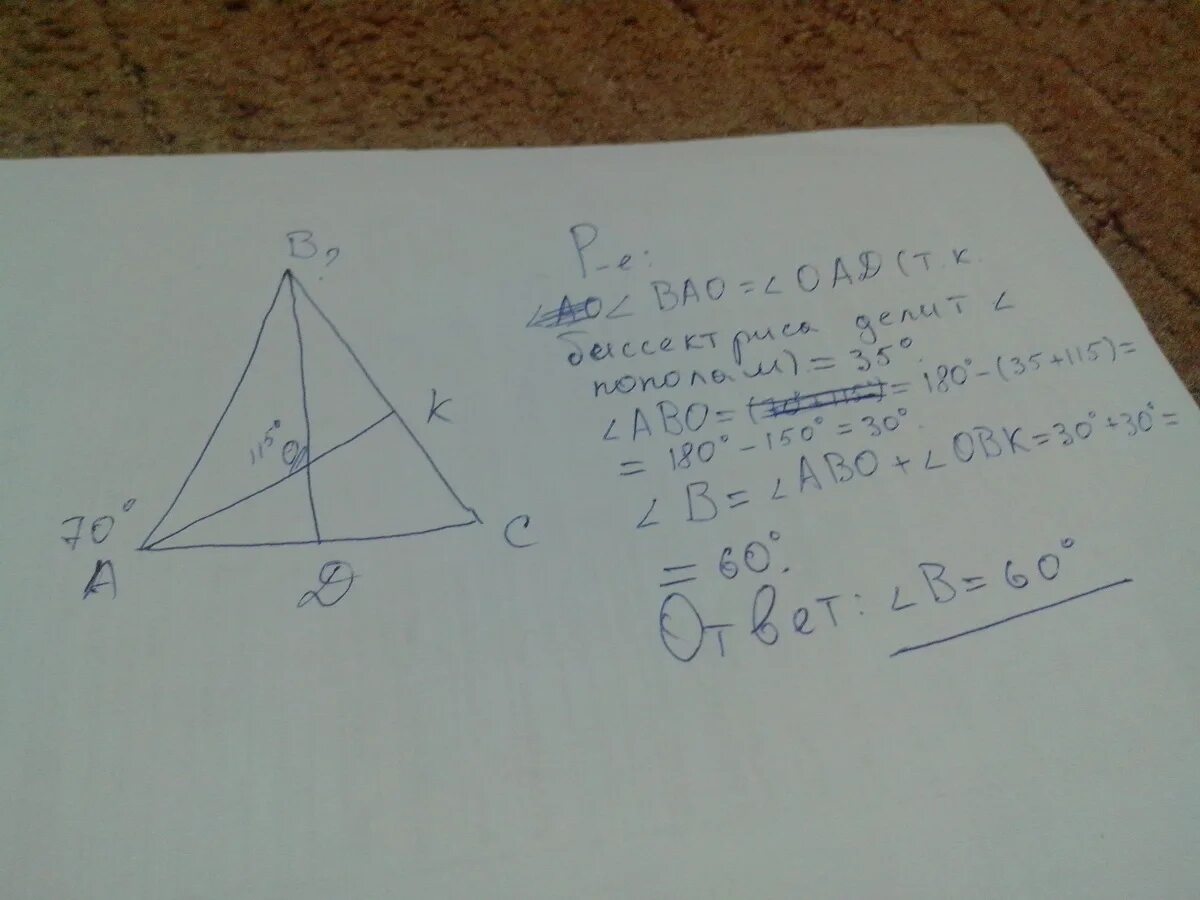 B?
K
115°
O
70°
A
D
C
Р-е:
∠BAO = ∠OAD (т.к.
биссектриса делит ∠
пополам) = 35°.
∠ABO = = 180° - (35 + 115) =
= 180° - 150° = 30°.
∠B = ∠ABO + ∠OBK = 30° + 30° =
= 60°.
Ответ: ∠B = 60°